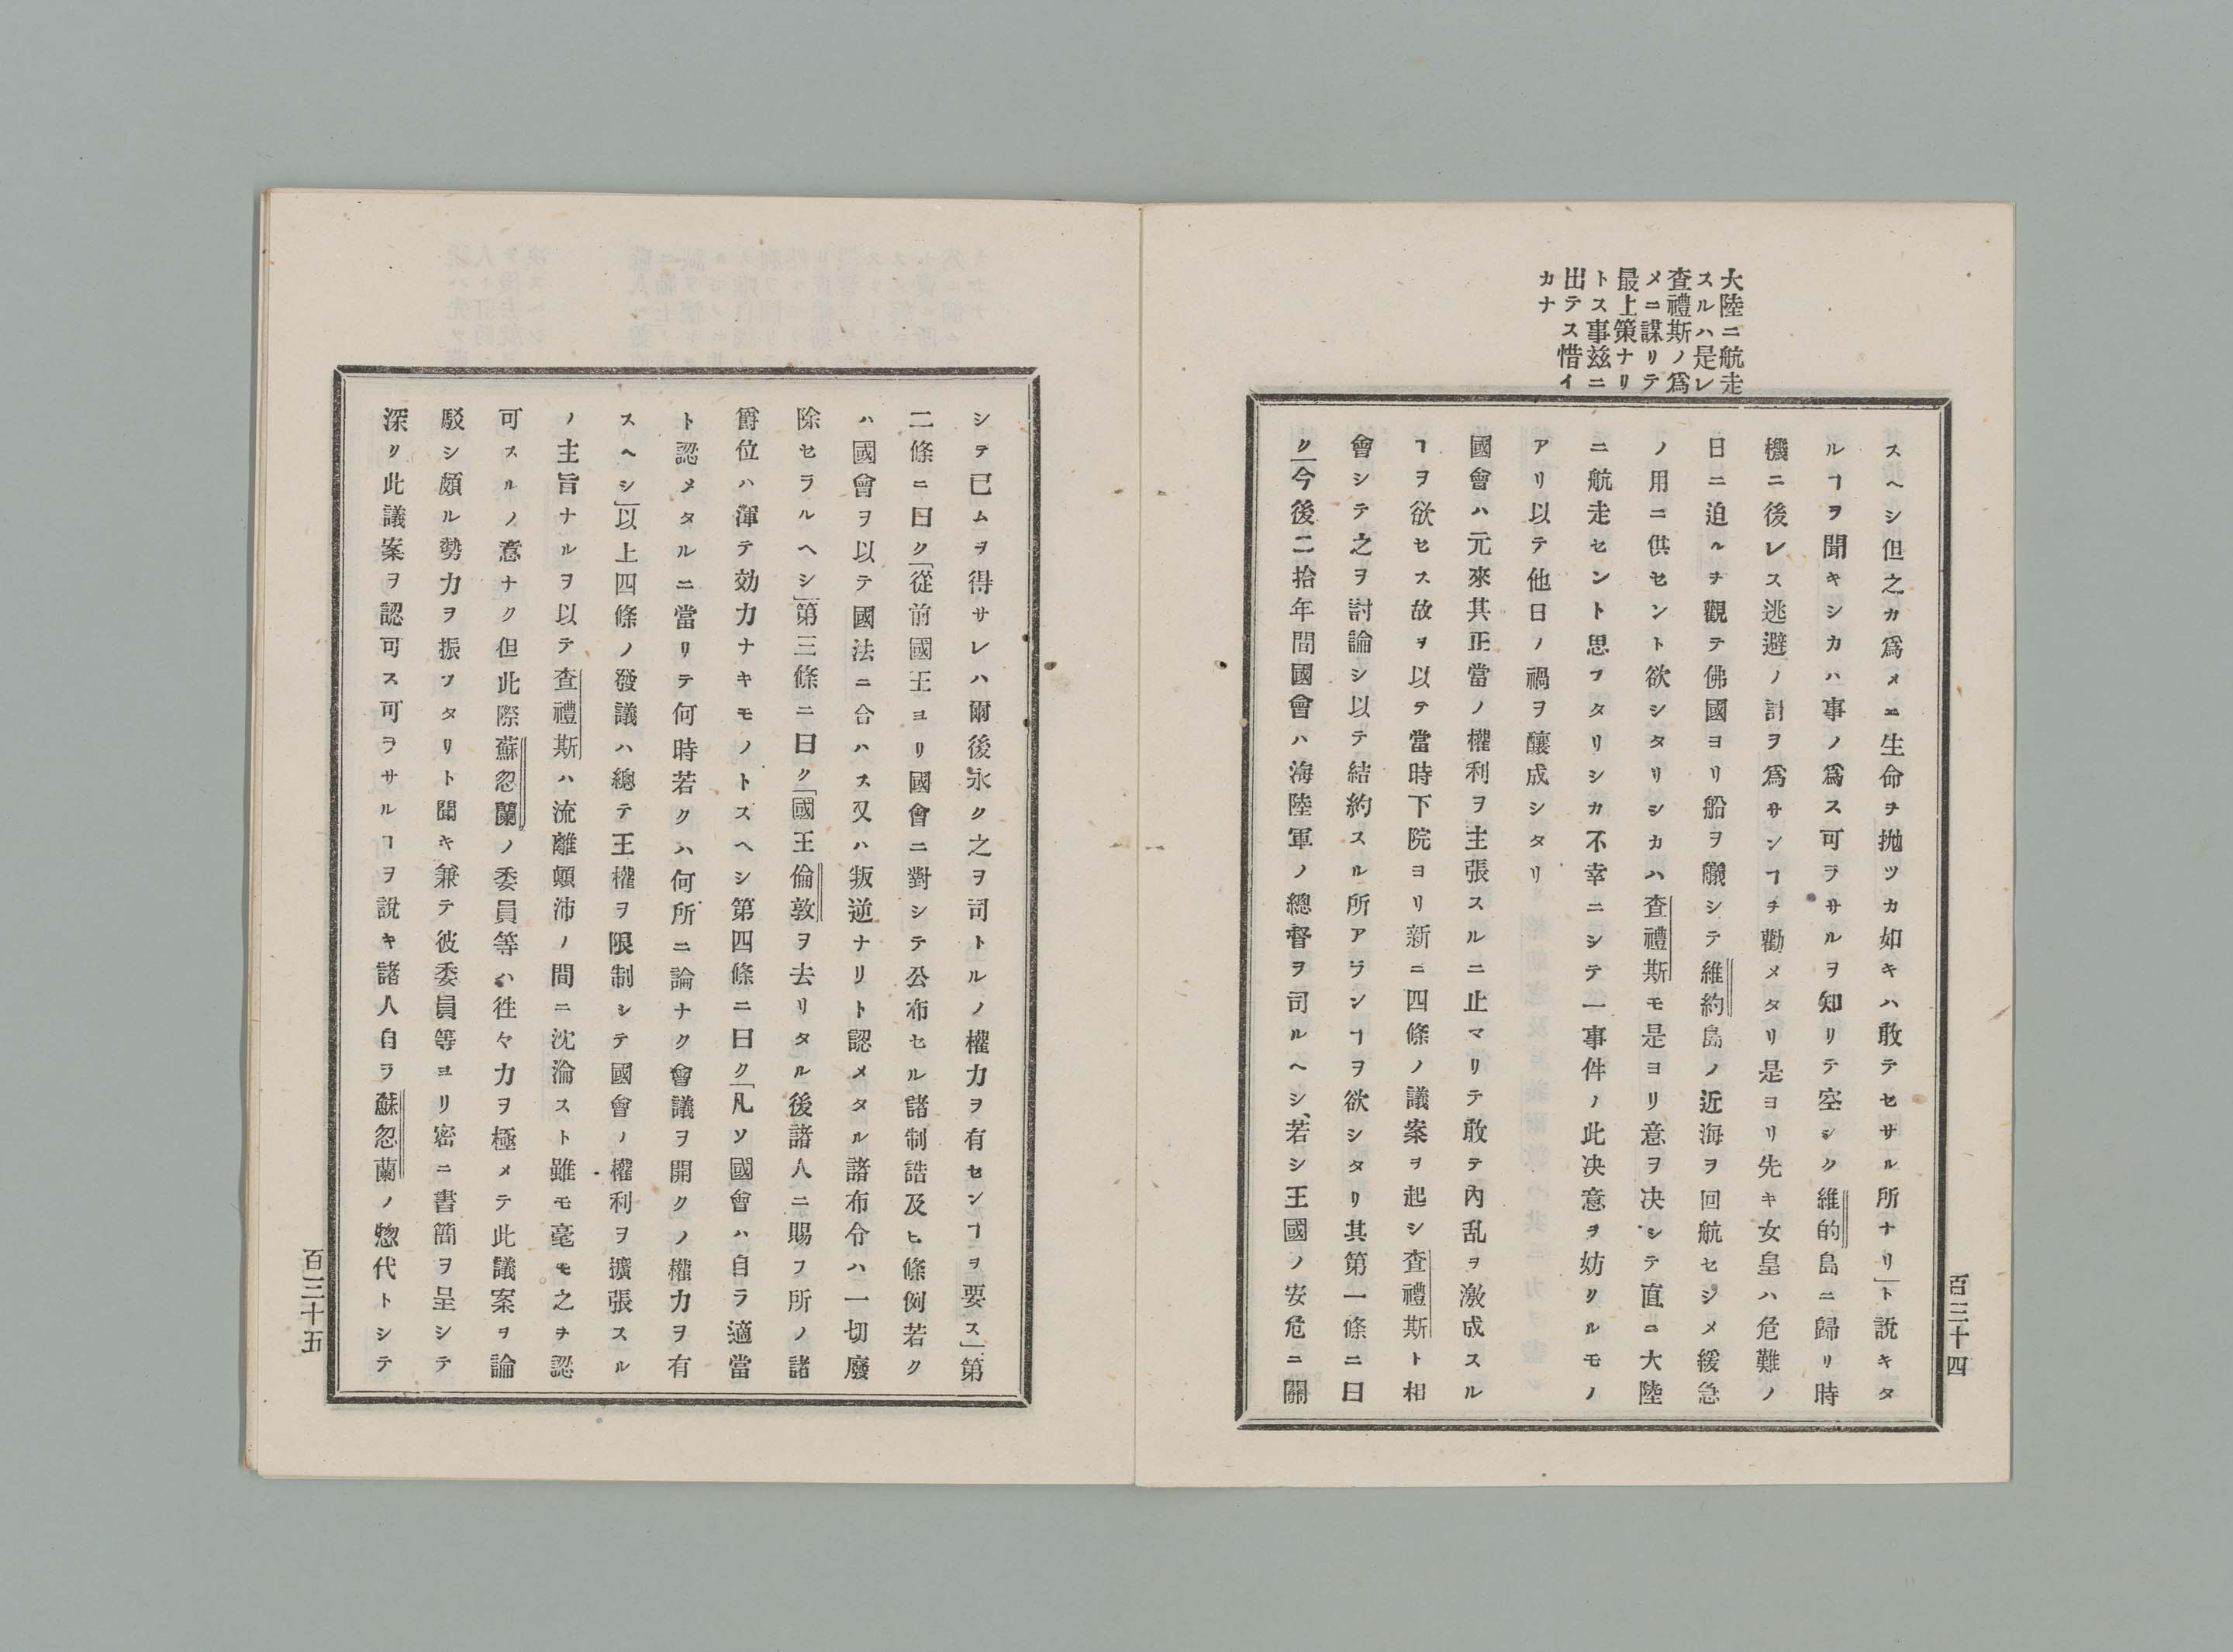 大陸ニ航走
スルハ是レ
査禮斯ノ爲
メニ謀リテ
最上策ナリ
トス事茲ニ
出テス惜イ
カナ
スヘシ但之カ爲メニ生命ヲ抛ツカ如キハ敢テセサル所ナリ」ト說キタ
ルヿヲ聞キシカハ事ノ爲ス可ラサルヲ知リテ空シク維的島ニ歸リ時
機ニ後レス逃避ノ計ヲ爲サンヿヲ勸メタリ是ヨリ先キ女皇ハ危難ノ
日ニ迫ルヲ觀テ佛國ヨリ船ヲ艤シテ維約島ノ近海ヲ回航セシメ緩急
ノ用ニ供セント欲シタリシカハ査禮斯モ是ヨリ意ヲ决シテ直ニ大陸
ニ航走セント思フタリシカ不幸ニシテ一事件ノ此决意ヲ妨クルモノ
アリ以テ他日ノ禍ヲ釀成シタリ
國會ハ元來其正當ノ權利ヲ主張スルニ止マリテ敢テ內乱ヲ激成スル
ヿヲ欲セス故ヲ以テ當時下院ヨリ新ニ四條ノ議案ヲ起シ査禮斯ト相
會シテ之ヲ討論シ以テ結約スル所アランヿヲ欲シタリ其第一條ニ曰
ク「今後二拾年間國會ハ海陸軍ノ總督ヲ司ルヘシ、若シ王國ノ安危ニ關
百三十四
シテ已ムヲ得サレハ爾後永ク之ヲ司トルノ權力ヲ有センヿヲ要ス」第
二條ニ曰ク「從前國王ヨリ國會ニ對シテ公布セル諸制誥及ヒ條例若ク
ハ國會ヲ以テ國法ニ合ハス又ハ叛逆ナリト認メタル諸布令ハ一切廢
除セラルヘシ」第三條ニ曰ク「國王倫敦ヲ去リタル後諸人ニ賜フ所ノ諸
爵位ハ渾テ効力ナキモノトスヘシ第四條ニ曰ク「凡ソ國會ハ自ラ適當
ト認メタルニ當リテ何時若クハ何所ニ論ナク會議ヲ開クノ權力ヲ有
スヘシ」以上四條ノ發議ハ總テ王權ヲ限制シテ國會ノ權利ヲ擴張スル
ノ主旨ナルヲ以テ査禮斯ハ流離顚沛ノ間ニ沈淪スト雖モ毫モ之ヲ認
可スルノ意ナク但此際蘇忽蘭ノ委員等ハ徃々力ヲ極メテ此議案ヲ論
駁シ頗ル勢力ヲ振フタリト聞キ兼テ彼委員等ヨリ密ニ書簡ヲ呈シテ
深ク此議案ヲ認可ス可ラサルヿヲ說キ諸人自ラ蘇忽蘭ノ惣代トシテ
百三十五